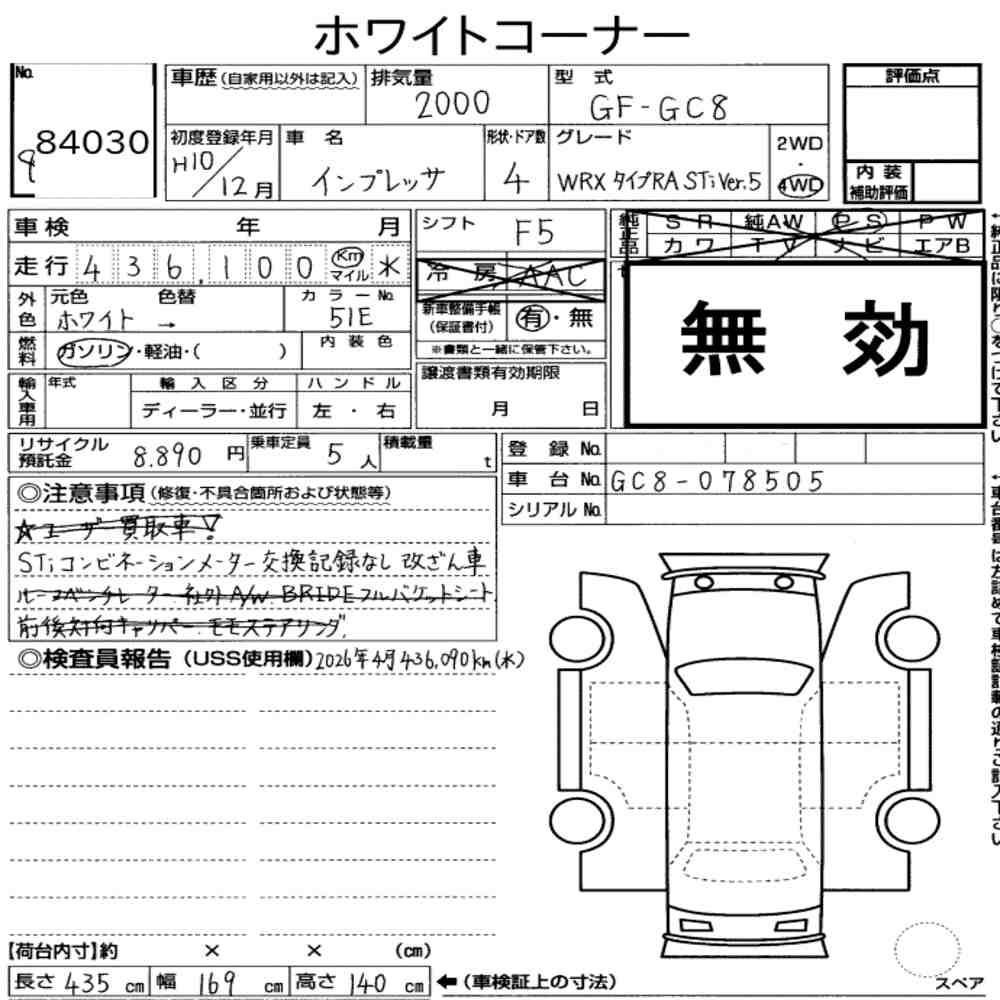 ホワイトコーナー
No. 84030
8
車歴 (自家用以外は記入)
排気量 2000
型式 GF-GC8
評価点
内装補助評価
初度登録年月 H10/12月
車名 インプレッサ
形状・ドア数 4
グレード WRX タイプRA STi Ver.5
2WD・4WD
車検 年 月
シフト F5
純正品 SR 純AW PS PW
カワ TV ナビ エアB
走行 436,100 Km マイル 米
冷房 AAC
外色 元色 ホワイト 色替 → カラーNo. 51E
新車整備手帳(保証書付) 有・無
※書類と一緒に保管下さい。
無効
燃料 ガソリン・軽油・( ) 内装色
輸入車用 年式 輸入区分 ハンドル
ディーラー・並行 左・右
譲渡書類有効期限
月 日
リサイクル預託金 8.890円
乗車定員 5人
積載量 t
登録No.
車台No. GC8-078505
シリアルNo.
◎注意事項 (修復・不具合箇所および状態等)
☆ユーザー買取車!
STiコンビネーションメーター交換記録なし 改ざん車
ルーフベンチレーター.社外A/W.BRIDEフルバケットシート
前後対向キャリパー.モモステアリング.
◎検査員報告 (USS使用欄) 2026年4月 436,090km(米)
【荷台内寸】約 × × (cm)
長さ 435 cm 幅 169 cm 高さ 140 cm ←(車検証上の寸法)
スペア
←純正品に限り○をつけて下さい
←車台番号は左詰めで車検証記載の通りご記入下さい